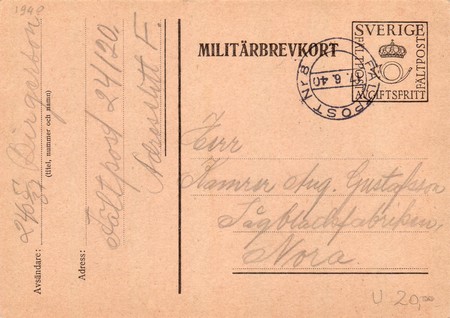 1940
Birgersson
Avsändare:
(titel, nummer och namn)
Adress:
Fältpost 24120
Adresslitt F.
MILITÄRBREVKORT
SVERIGE
FÄLTPOST
FÄLTPOST
AVGIFTSFRITT
FÄLTPOST NR 8
.6.40
Herr
Kamrer Aug. Gustafsson
Sågbladsfabriken,
Nora.
U 20,00